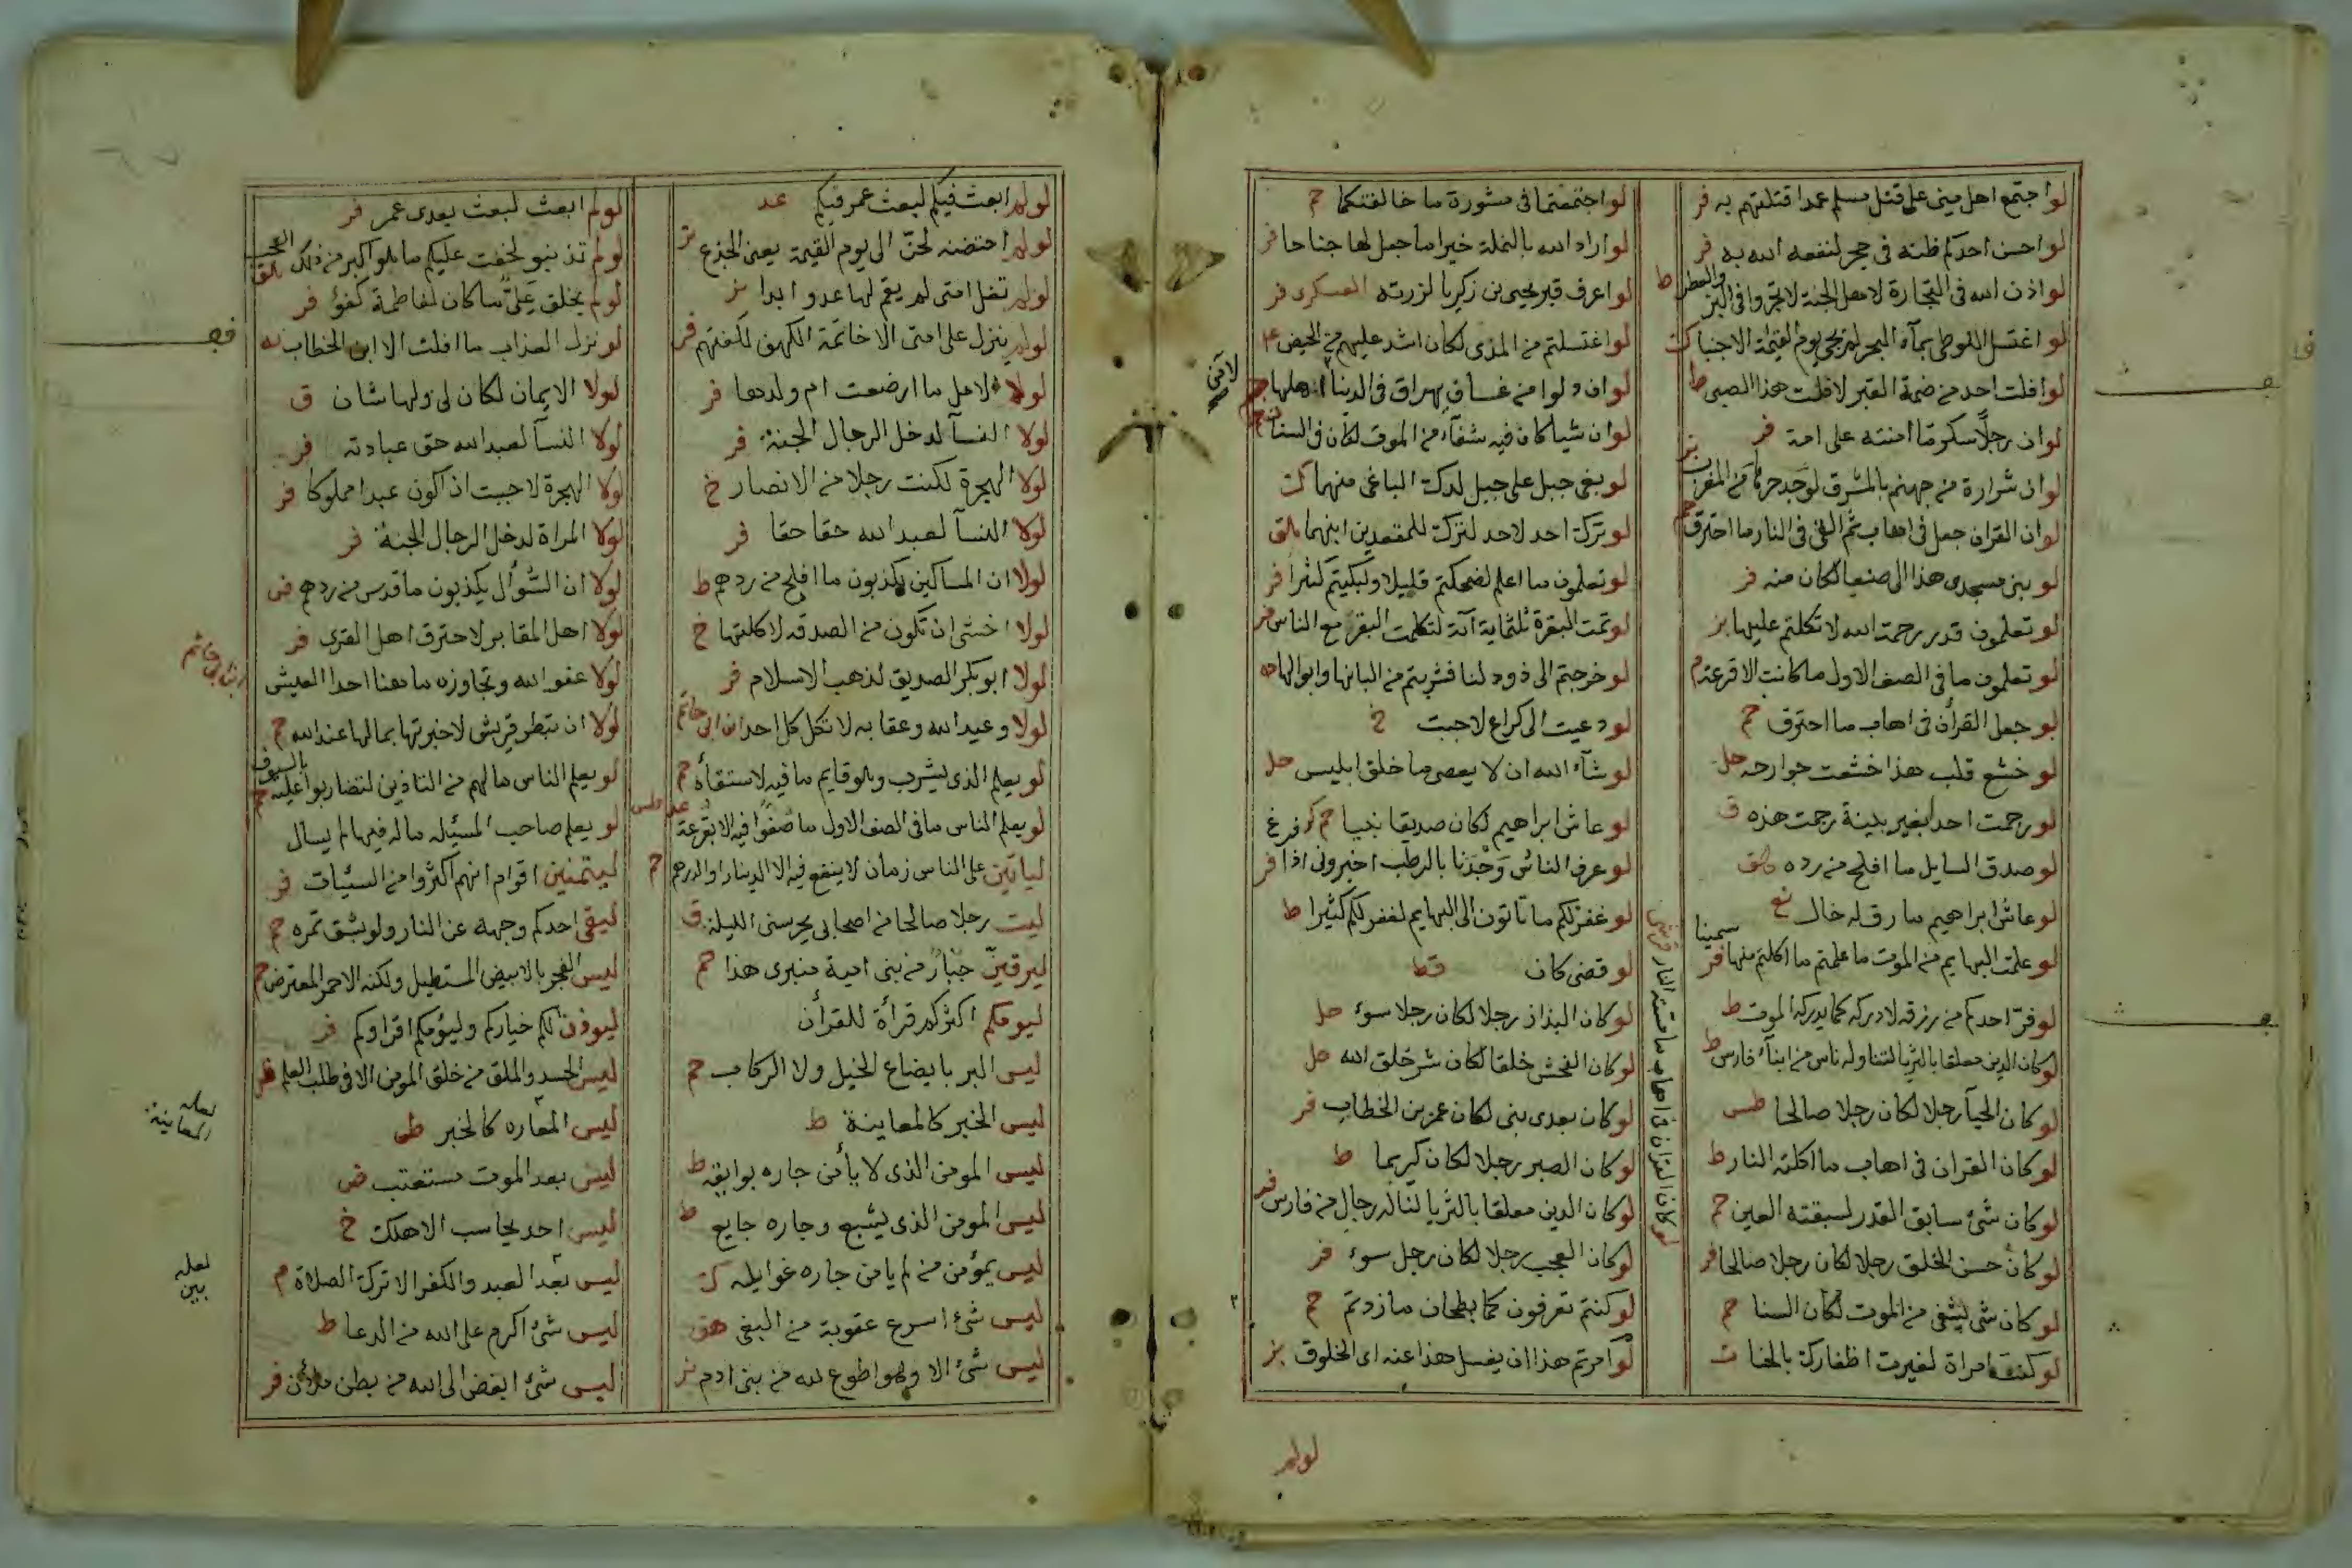 لو اجتمع اهل منى على قتل مسلم عمدا قتلتهم به فر
لو احسن احدكم ظنه فى حجر لنفعه الله به فر
لو اذن الله فى التجارة لاهل الجنة لاتجروا فى البز والعطر ط
لو اغتسل اللوطى بمآء البحر لم يجى يوم القيمة الا جنبا
لو افلت احد من ضمة القبر لافلت هذا الصبى ط
لو ان رجلا سكر ما امنته على امة فر
لو ان شرارة من جهنم بالمشرق لوجد حرها من المغرب
لو ان القران جعل فى اهاب ثم القى فى النار ما احترق
لو بنى مسجدى هذا الى صنعا لكان منه فر
لو تعلمون قدر رحمة الله لاتكلتم عليها بز
لو تعلمون ما فى الصف الاول ما كانت الا قرعة م
لو جعل القرأن فى اهاب ما احترق حم
لو خشع قلب هذا خشعت جوارحه حل
لو رجمت احدا بغير بينة رجمت هذه ق
لو صدق السايل ما افلح من رده
لو عاش ابراهيم ما رق له خال
لو علمت البهايم من الموت ما علمتم ما اكلتم منها سمينا فر
لو فر احدكم من رزقه لادركه كما يدركه الموت ط
لو كان الدين معلقا بالثريا لتناوله ناس من ابنآء فارس ط
لو كان الحيآء رجلا لكان رجلا صالحا طس
لو كان القران فى اهاب ما اكلته النار ط
لو كان شئ سابق القدر لسبقته العين حم
لو كان حسن الخلق رجلا لكان رجلا صالحا فر
لو كان شى يشفى من الموت لكان السنا حم
لو كنت امراة لغيرت اظفارك بالحنا
لو كان القران فى اهاب ما مسته النار
لو اجتمعتما فى مشورة ما خالفتكما حم
لو اراد الله بالنملة خيرا ما جعل لها جناحا فر
لو اعرف قبر يحيى بن زكريا لزرته العسكرى فر
لو اغتسلتم من المذى لكان اشد عليهم من الحيض
لو ان دلوا من غساق يهراق فى الدنيا لانتن اهلها
لو ان شيا كان فيه شفآء من الموت لكان فى السنا
لو بغى جبل على جبل لدك الباغى منهما
لو ترك احد لاحد لترك للمقعدين ابنهما
لو تعلمون ما اعلم لضحكتم قليلا ولبكيتم كثيرا فر
لو تمت البقرة ثلثماية آية لتكلمت البقر مع الناس
لو خرجتم الى ذود لنا فشربتم من البانها وابوالها
لو دعيت الى كراع لاجبت خ
لو شآء الله ان لا يعصى ما خلق ابليس حل
لو عاش ابراهيم لكان صديقا نبيا
لو عرف الناس وجدنا بالرطب اخبرونى اذا فر
لو غفر لكم ما تاتون الى البهايم لغفر لكم كثيرا ط
لو قضى كان قط
لو كان البذاء رجلا لكان رجلا سوء حل
لو كان الفحش خلقا لكان شر خلق الله حل
لو كان بعدى نبى لكان عمر بن الخطاب فر
لو كان الصبر رجلا لكان كريما ط
لو كان الدين معلقا بالثريا لناله رجال من فارس
لو كان العجب رجلا لكان رجل سوء فر
لو كنتم تعرفون كما بطحان ما زدتم حم
لو امرتم هذا ان يغسل هذا عنه اى الخلوق
لولم
لو لم ابعث فيكم لبعث عمر فيكم عد
لو لم احتضنه لحن الى يوم القيمة يعنى الجذع
لو لم تغل امتى لم يقم لها عدو ابدا
لو لم ينزل على امتى الا خاتمة الكهف لكفتهم فر
لولا الامل ما ارضعت ام ولدها فر
لولا النسآء لدخل الرجال الجنة فر
لولا الهجرة لكنت رجلا من الانصار خ
لولا النسآ لعبد الله حقا حقا فر
لولا ان المساكين يكذبون ما افلح من ردهم ط
لولا اخشى ان تكون من الصدقه لاكلتها خ
لولا ابو بكر الصديق لذهب الاسلام فر
لولا وعيد الله وعقابه لاتكل كل احد ابن ابى حاتم
لو يعلم الذى يشرب وهو قايم ما فيه لاستقآء حم
لو يعلم الناس ما فى الصف الاول ما صفوا فيه الا بقرعة
لياتين على الناس زمان لا ينفع فيه الا الدينار او الدرهم حم
ليت رجلا صالحا من اصحابى يحرسنى الليلة ق
ليرقين جبار من بنى امية منبرى هذا حم
ليومكم اكثركم قرأة للقرأن
ليس البر بايضاع الخيل ولا الركاب حم
ليس الخبر كالمعاينة ط
ليس المومن الذى لا يأمن جاره بوايقه ط
ليس المومن الذى يشبع وجاره جايع ط
ليس بمؤمن من لم يامن جاره غوايله ك
ليس شئ اسرع عقوبة من البغى هق
ليس شئ الا وهو اطوع لله من بنى ادم
لو لم ابعث لبعث بعدى عمر فر
لو لم تذنبوا لخفت عليكم ما هو اكبر من ذلك العجب
لو لم يخلق على ما كان لفاطمة كفو فر
لو نزل العذاب ما افلت الا ابن الخطاب
لولا الايمان لكان لى ولها شان ق
لولا النسآ لعبد الله حق عبادته فر
لولا الهجرة لاحببت ان اكون عبدا مملوكا فر
لولا المراة لدخل الرجال الجنة فر
لولا ان السؤال يكذبون ما قدس من ردهم
لولا اهل المقابر لاحترق اهل القرى فر
لولا عفو الله وتجاوزه ما هنا احدا العيش
ابن ابى حاتم
لولا ان تبطر قريش لاخبرتها بما لها عند الله حم
لو يعلم الناس ما لهم من التاذين لتضاربوا عليه بالسيوف حم
لو يعلم صاحب المسيلة ما له فيها لم يسال
ليتمنين اقوام انهم اكثروا من السيئات فر
ليقى احدكم وجهه عن النار ولو بشق تمره حم
ليس الفجر بالابيض المستطيل ولكنه الاحمر المعترض حم
ليوذن لكم خياركم وليؤمكم اقراوكم فر
ليس الحسد والملق من خلق المومن الا فى طلب العلم
ليس المعاره كالخبر
لعله المعاينة
ليس بعد الموت مستعتب
ليس احد يحاسب الا هلك خ
ليس بعد العبد والكفر الا ترك الصلاة م
لعله بين
ليس شئ اكرم على الله من الدعا ط
ليس شئ ابغض الى الله من بطن ملآن فر